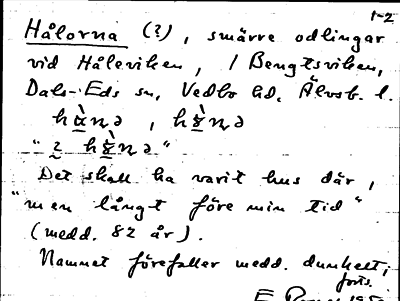 1-2
Hålorna (?), smärre odlingar
vid Håleviken, / Bengtsviken,
Dals-Eds sn, Vedbo hd, Älvsb. l.
Det skall ha varit hus där,
"men långt före min tid"
(medd. 82 år).
Namnet förefaller medd. dunkelt,
forts.